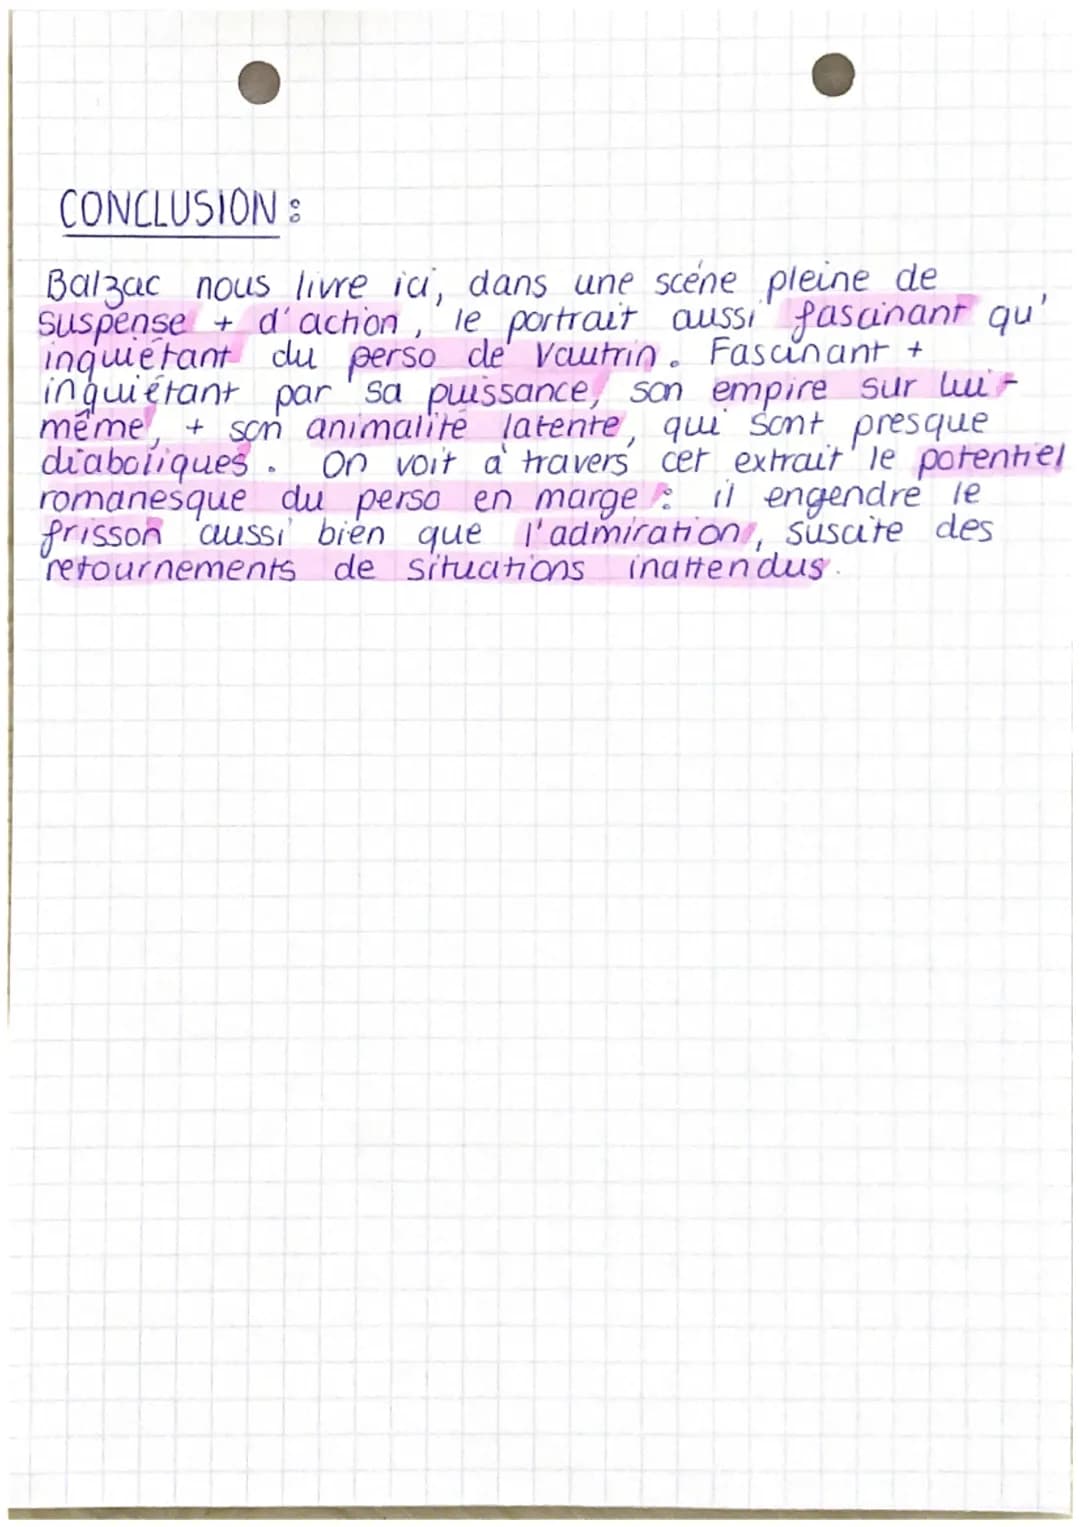 CONCLUSION :
Balzac nous livre ici, dans une scène pleine de
suspense + d'action, le portrait aussi fascinant qu'
inquiétant du perso de Vautrin. Fascinant +
inquiétant par sa puissance, son empire sur lui-
même, + son animalité latente, qui sont presque
diaboliques. On voit à travers cet extrait le potentiel
romanesque du perso en marge : il engendre le
frisson aussi bien que l'admiration, suscite des
retournements de situations inattendus.